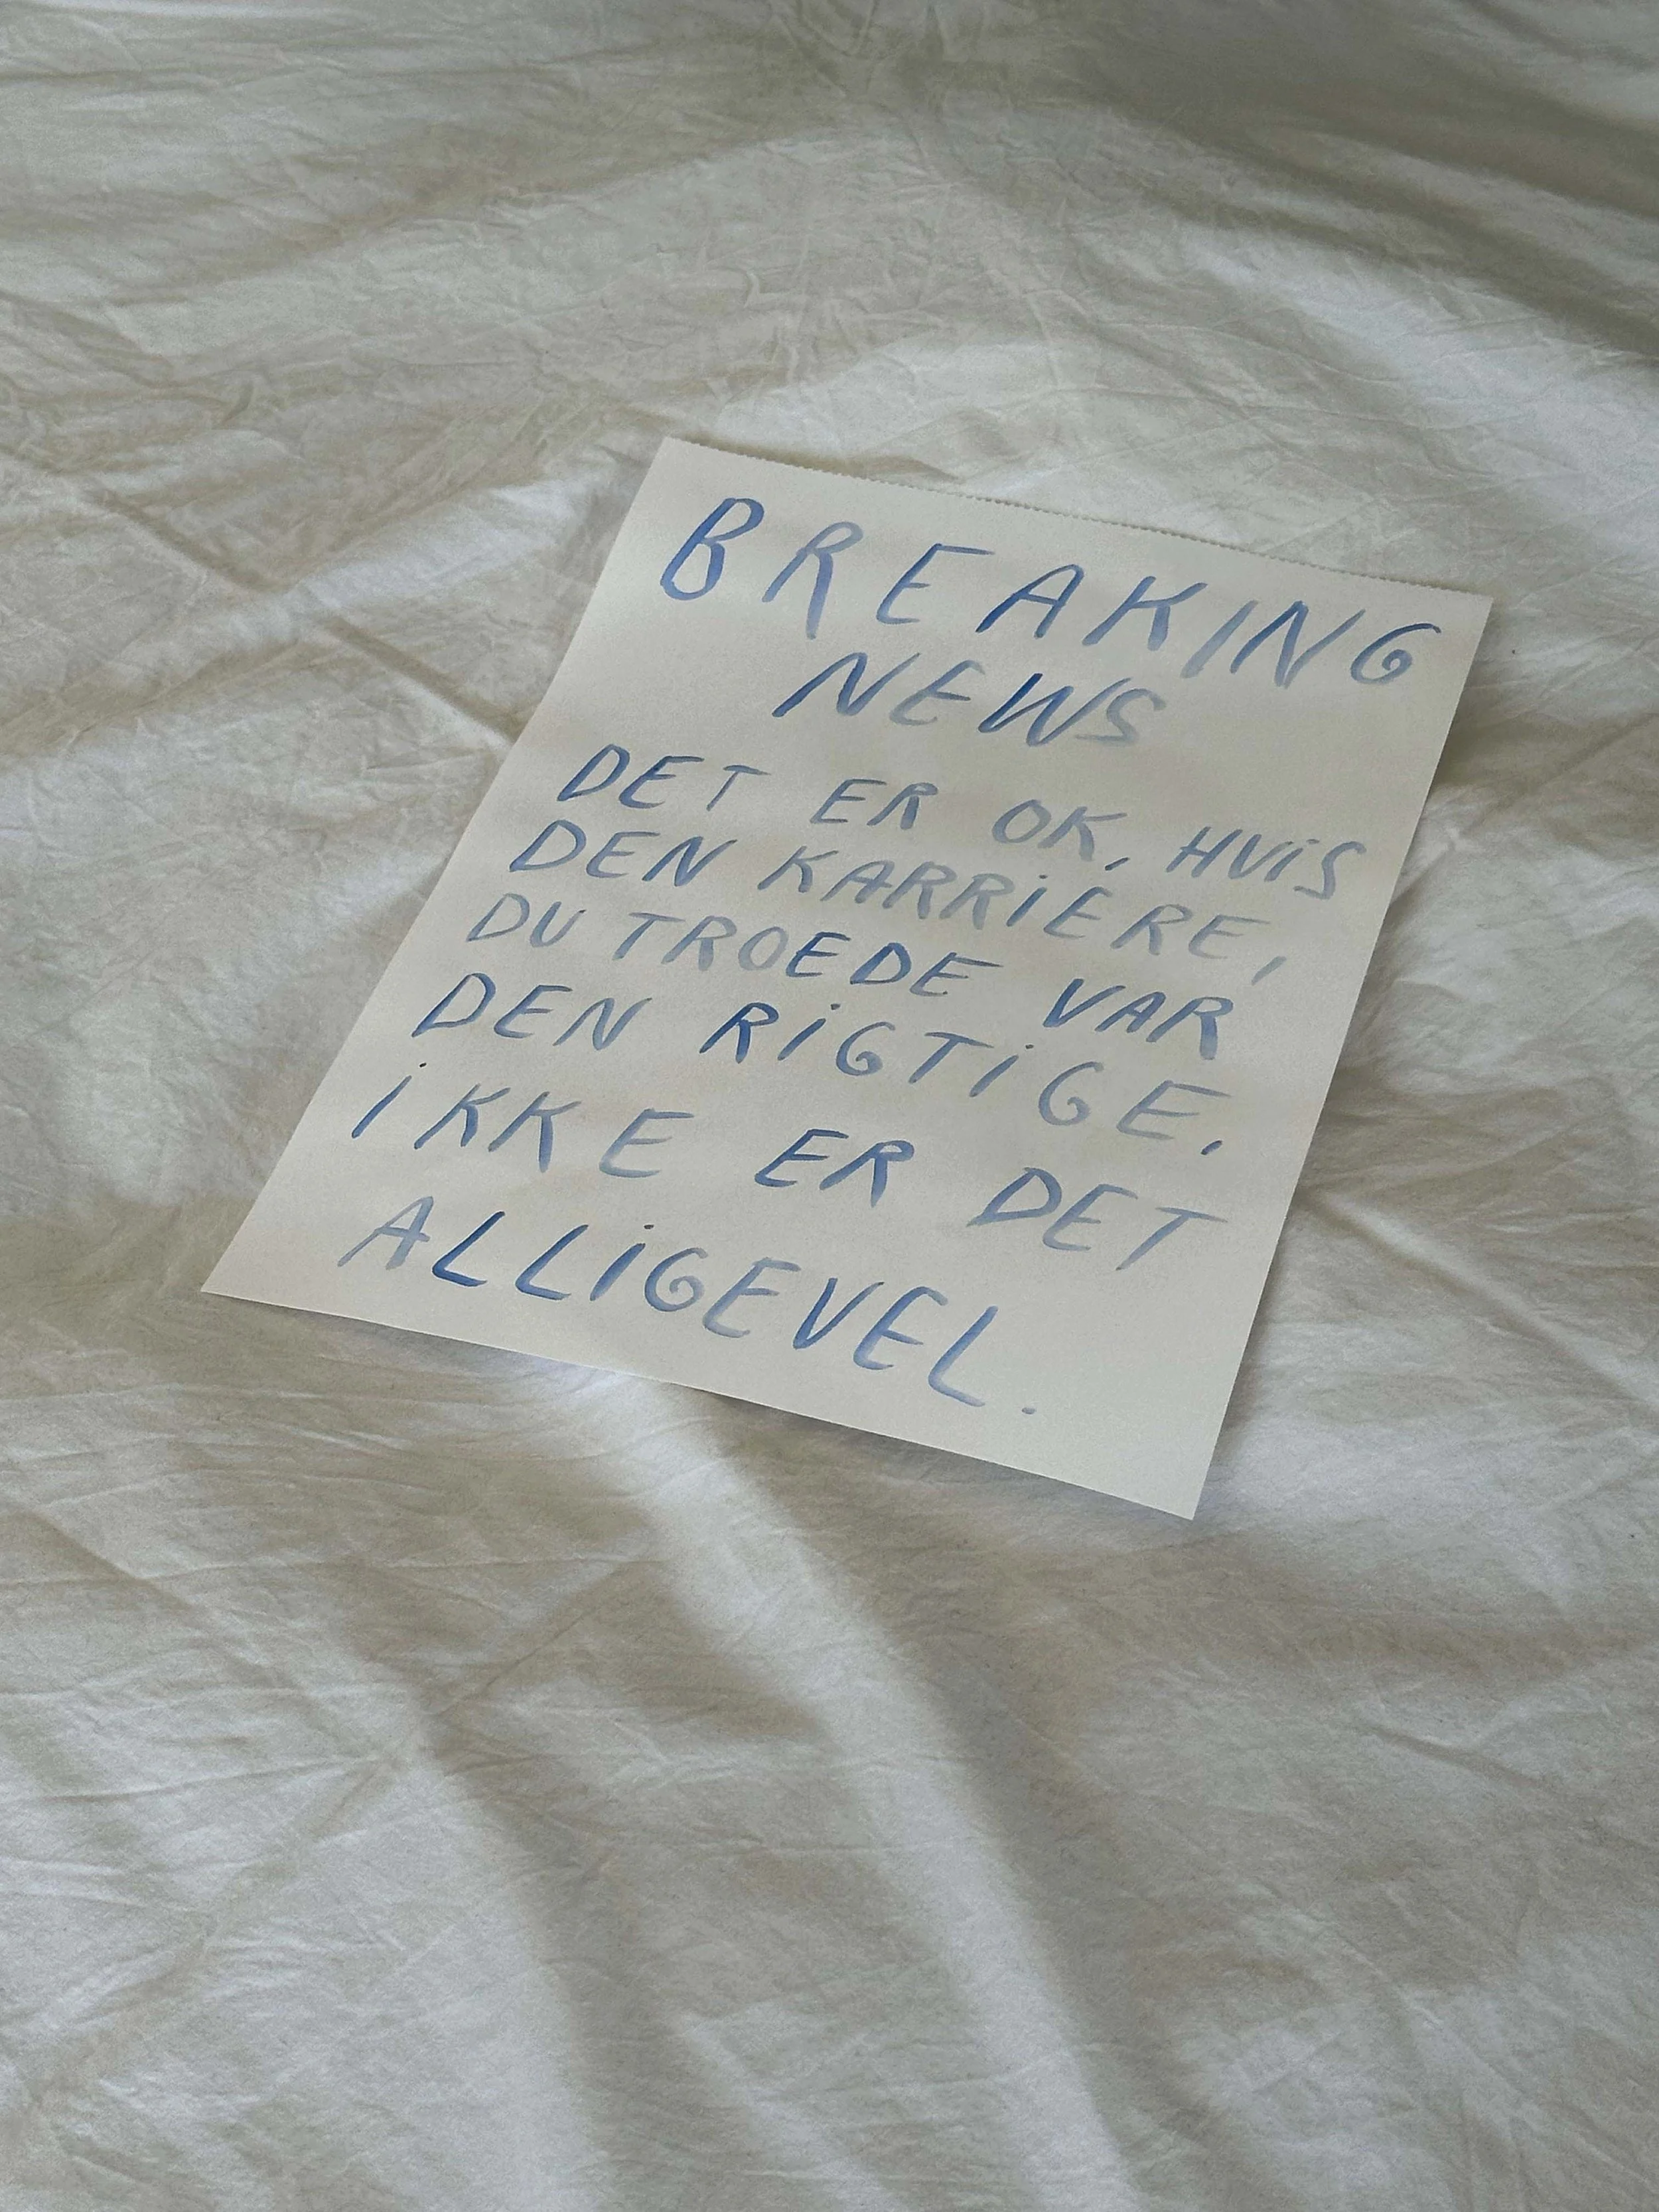 BREAKING
NEWS
DET ER OK, HVIS
DEN KARRIERE,
DU TROEDE VAR
DEN RIGTIGE.
IKKE ER DET
ALLIGEVEL.